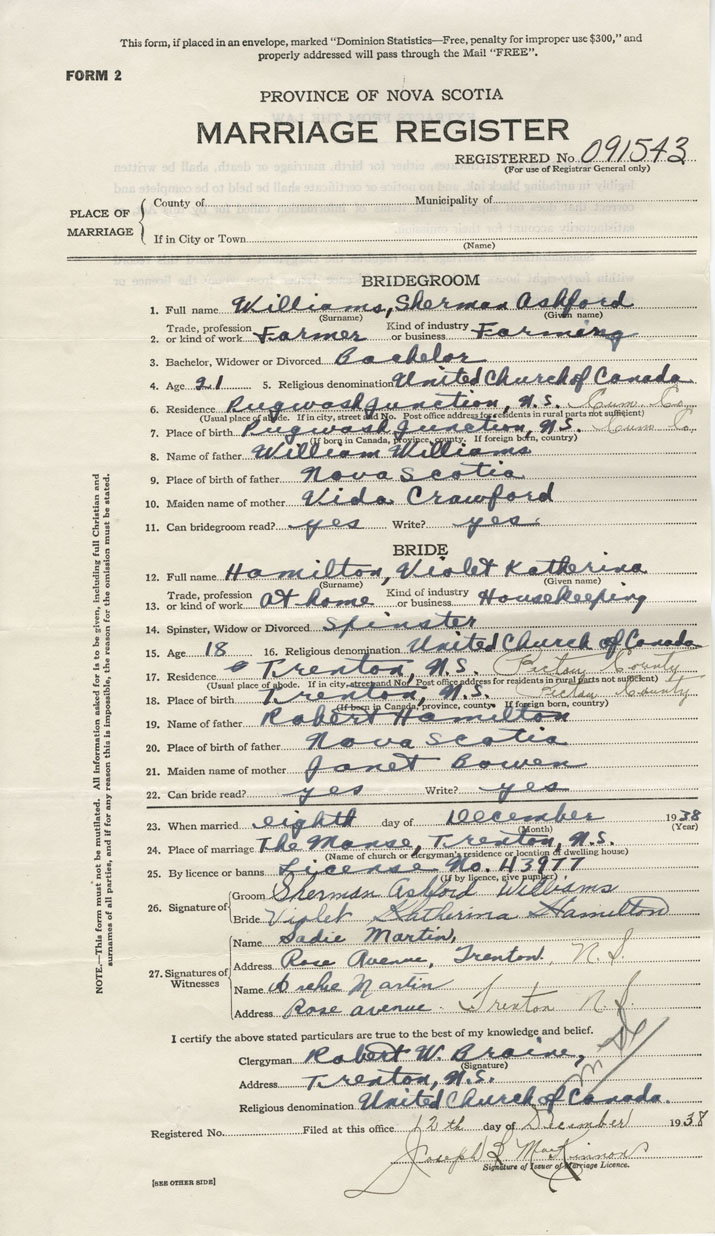 This form, if placed in an envelope, marked "Dominion Statistics—Free, penalty for improper use $300," and
properly addressed will pass through the Mail "FREE".
FORM 2
PROVINCE OF NOVA SCOTIA
MARRIAGE REGISTER
REGISTERED No. 091543
(For use of Registrar General only)
PLACE OF MARRIAGE
County of Municipality of
If in City or Town
(Name)
BRIDEGROOM
1. Full name Williams, Sherman Ashford
(Surname) (Given name)
2. Trade, profession or kind of work Farmer Kind of industry or business Farming
3. Bachelor, Widower or Divorced Bachelor
4. Age 21 5. Religious denomination United Church of Canada
6. Residence Pugwash Junction, N.S. Cum. Co.
(Usual place of abode. If in city, street and No. Post office address for residents in rural parts not sufficient)
7. Place of birth Pugwash Junction, N.S. Cum. Co.
(If born in Canada, province, county. If foreign born, country)
8. Name of father William Williams
9. Place of birth of father Nova Scotia
10. Maiden name of mother Vida Crawford
11. Can bridegroom read? yes Write? yes.
BRIDE
12. Full name Hamilton, Violet Katherina
(Surname) (Given name)
13. Trade, profession or kind of work At home Kind of industry or business Housekeeping
14. Spinster, Widow or Divorced Spinster
15. Age 18 16. Religious denomination United Church of Canada
17. Residence Trenton, N.S. Pictou County
(Usual place of abode. If in city, street and No. Post office address for residents in rural parts not sufficient)
18. Place of birth Trenton, N.S. Pictou County
(If born in Canada, province, county. If foreign born, country)
19. Name of father Robert Hamilton
20. Place of birth of father Nova Scotia
21. Maiden name of mother Janet Bowen
22. Can bride read? yes Write? yes
23. When married eighth day of December 1938
(Month) (Year)
24. Place of marriage The Manse, Trenton, N.S.
(Name of church or clergyman's residence or location of dwelling house)
25. By licence or banns License No. 43977
(If by licence, give number)
26. Signature of
Groom Sherman Ashford Williams
Bride Violet Katherina Hamilton
27. Signatures of Witnesses
Name Sadie Martin,
Address Rose Avenue, Trenton, N.S.
Name Archie Martin
Address Rose avenue. Trenton N.S.
I certify the above stated particulars are true to the best of my knowledge and belief.
Clergyman Robert W. Braine,
(Signature)
Address Trenton, N.S.
Religious denomination United Church of Canada.
Registered No. Filed at this office 12th day of December 1938
Joseph L MacKinnon
Signature of Issuer of Marriage Licence.
[SEE OTHER SIDE]
NOTE.—This form must not be mutilated. All information asked for is to be given, including full Christian and
surnames of all parties, and if for any reason this is impossible, the reason for the omission must be stated.